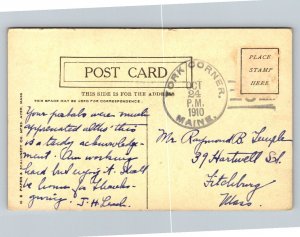 POST CARD
THIS SIDE IS FOR THE ADDRESS
THIS SPACE MAY BE USED FOR CORRESPONDENCE.
PLACE
STAMP
HERE
YORK CORNER,
OCT
24
P.M.
1910
MAINE.
Your postals were much
appreciated altho' this
is a tardy acknowledg-
ment. Am working
hard but enjoy it. Shall
be home for Thanks-
giving. J. H.
Mr Raymond B. Temple
39 Hartwell St
Fitchburg
Mass.